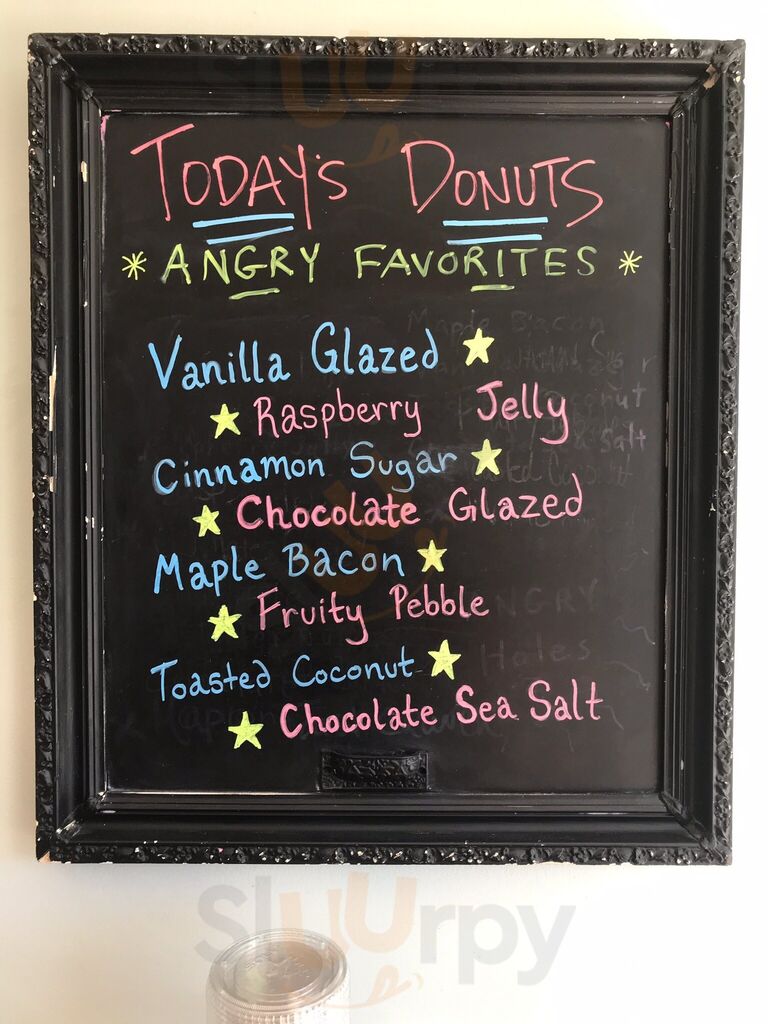 TODAY'S DONUTS
* ANGRY FAVORITES *
Vanilla Glazed
Raspberry Jelly
Cinnamon Sugar
Chocolate Glazed
Maple Bacon
Fruity Pebble
Toasted Coconut
Chocolate Sea Salt
Sluurpy